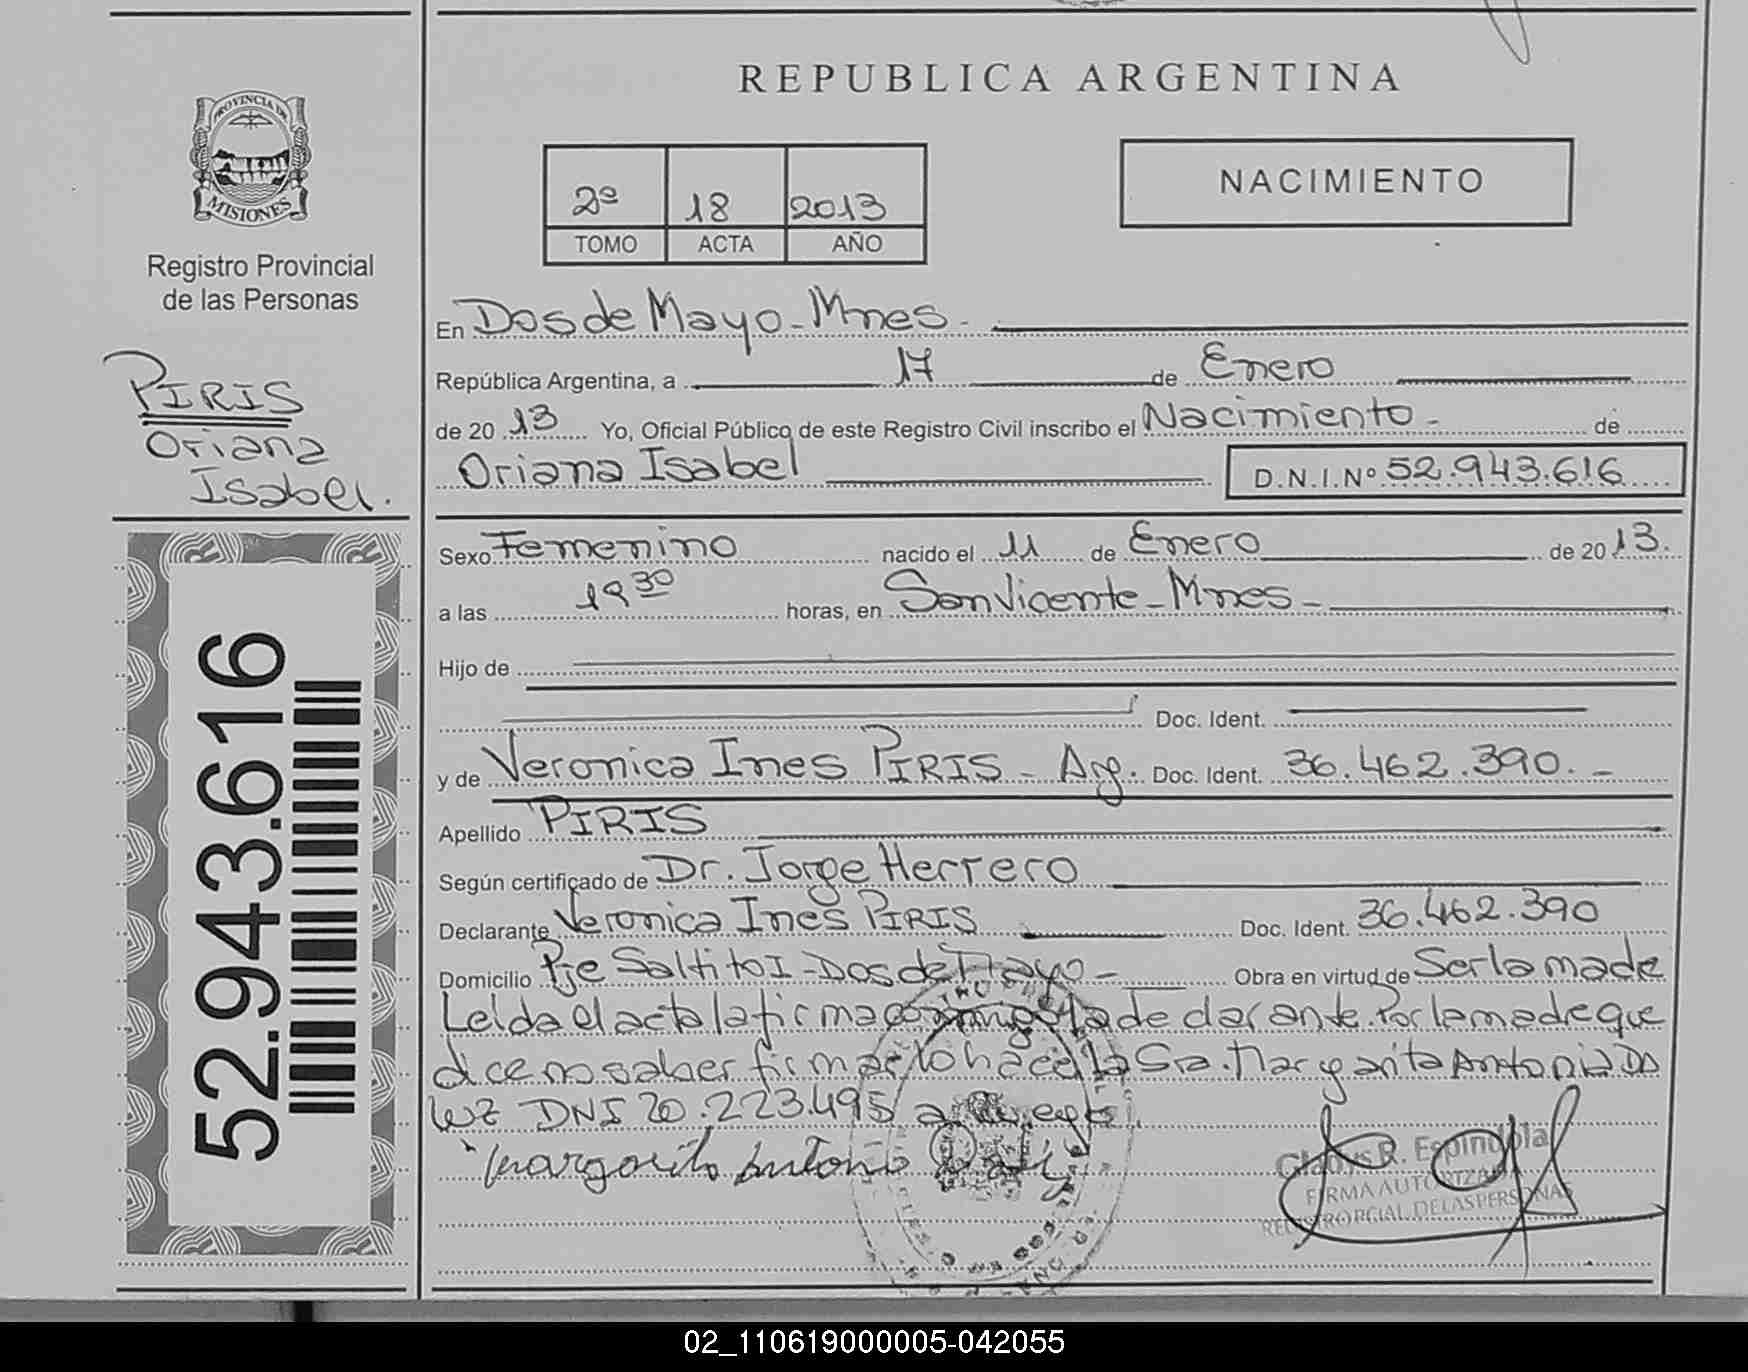 REPUBLICA ARGENTINA
PROVINCIA DE
MISIONES
Registro Provincial
de las Personas
PIRIS
Oriana
Isabel.
52.943.616
2º 18 2013
TOMO ACTA AÑO
NACIMIENTO
En Dos de Mayo - Mnes -
República Argentina, a 17 de Enero
de 2013 Yo, Oficial Público de este Registro Civil inscribo el Nacimiento - de
Oriana Isabel D.N.I.Nº 52.943.616
Sexo Femenino nacido el 11 de Enero de 2013.
a las 19 30 horas, en San Vicente - Mnes -
Hijo de
Doc. Ident.
y de Veronica Ines PIRIS - Arg. Doc. Ident. 36.462.390. -
Apellido PIRIS
Según certificado de Dr. Jorge Herrero
Declarante Veronica Ines PIRIS Doc. Ident. 36.462.390
Domicilio Pje Saltito I - Dos de Mayo - Obra en virtud de Ser la madre
Leida el acta la firma conmigo la declarante. Por la madre que
dice no saber firmar lo hace la Sra. Margarita Antonia Da
luz DNI 20.223.495 a ruego.
Margarita Antonia
Gladys R. Espindola
FIRMA AUTORIZADA
REGISTRO PCIAL. DE LAS PERSONAS
02_110619000005-042055